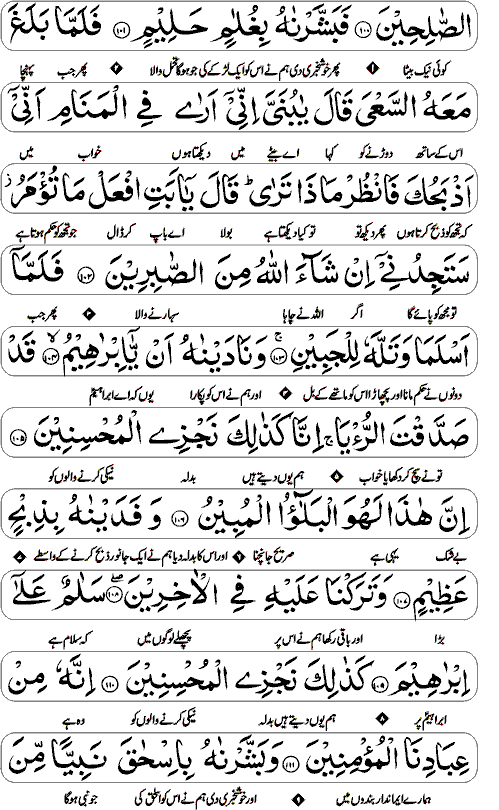 الصّٰلِحِيْنَ ۝۱۰۰ فَبَشَّرْنٰهُ بِغُلٰمٍ حَلِيْمٍ ۝۱۰۱ فَلَمَّا بَلَغَ
کوئی نیک بیٹا ۱ پھر خوشخبری دی ہم نے اس کو ایک لڑکے کی جو ہوگا تحمل والا ۲ پھر جب پہنچا
مَعَهُ السَّعْىَ قَالَ يٰبُنَىَّ اِنِّىْۤ اَرٰى فِى الْمَنَامِ اَنِّىْۤ
اس کے ساتھ دوڑنے کو کہا اے بیٹے میں دیکھتا ہوں خواب میں
اَذْبَحُكَ فَانْظُرْ مَاذَا تَرٰى ؕ قَالَ يٰۤاَبَتِ افْعَلْ مَا تُؤْمَرُ ؗ
کہ تجھ کو ذبح کرتا ہوں پھر دیکھ تو تو کیا دیکھتا ہے بولا اے باپ کر ڈال جو تجھ کو حکم ہوتا ہے
سَتَجِدُنِىْۤ اِنْ شَآءَ اللّٰهُ مِنَ الصّٰبِرِيْنَ ۝۱۰۲ فَلَمَّاۤ
تو مجھ کو پائے گا اگر اللہ نے چاہا سہارنے والا ۳ پھر جب
اَسْلَمَا وَتَلَّهٗ لِلْجَبِيْنِ ۝۱۰۳ ۚ وَنَادَيْنٰهُ اَنْ يّٰۤاِبْرٰهِيْمُ ۝۱۰۴ ۙ قَدْ
دونوں نے حکم مانا اور پچھاڑا اس کو ماتھے کے بل ۴ اور ہم نے اس کو پکارا یوں کہ اے ابراہیم
صَدَّقْتَ الرُّءْيَا ۚ اِنَّا كَذٰلِكَ نَجْزِى الْمُحْسِنِيْنَ ۝۱۰۵
تو نے سچ کر دکھایا خواب ۵ ہم یوں دیتے ہیں بدلہ نیکی کرنے والوں کو
اِنَّ هٰذَا لَهُوَ الْبَلٰٓؤُا الْمُبِيْنُ ۝۱۰۶ وَفَدَيْنٰهُ بِذِبْحٍ
بے شک یہی ہے صریح جانچنا ۶ اور اس کا بدلہ دیا ہم نے ایک جانور ذبح کرنے کے واسطے
عَظِيْمٍ ۝۱۰۷ وَتَرَكْنَا عَلَيْهِ فِى الْاٰخِرِيْنَ ۝۱۰۸ سَلٰمٌ عَلٰٓى
بڑا اور باقی رکھا ہم نے اس پر پچھلے لوگوں میں کہ سلام ہے
اِبْرٰهِيْمَ ۝۱۰۹ كَذٰلِكَ نَجْزِى الْمُحْسِنِيْنَ ۝۱۱۰ اِنَّهٗ مِنْ
ابراہیم پر ۸ ہم یوں دیتے ہیں بدلہ نیکی کرنے والوں کو وہ ہے
عِبَادِنَا الْمُؤْمِنِيْنَ ۝۱۱۱ وَبَشَّرْنٰهُ بِاِسْحٰقَ نَبِيًّا مِّنَ
ہمارے ایماندار بندوں میں ۹ اور خوشخبری دی ہم نے اس کو اسحٰق کی جو نبی ہوگا